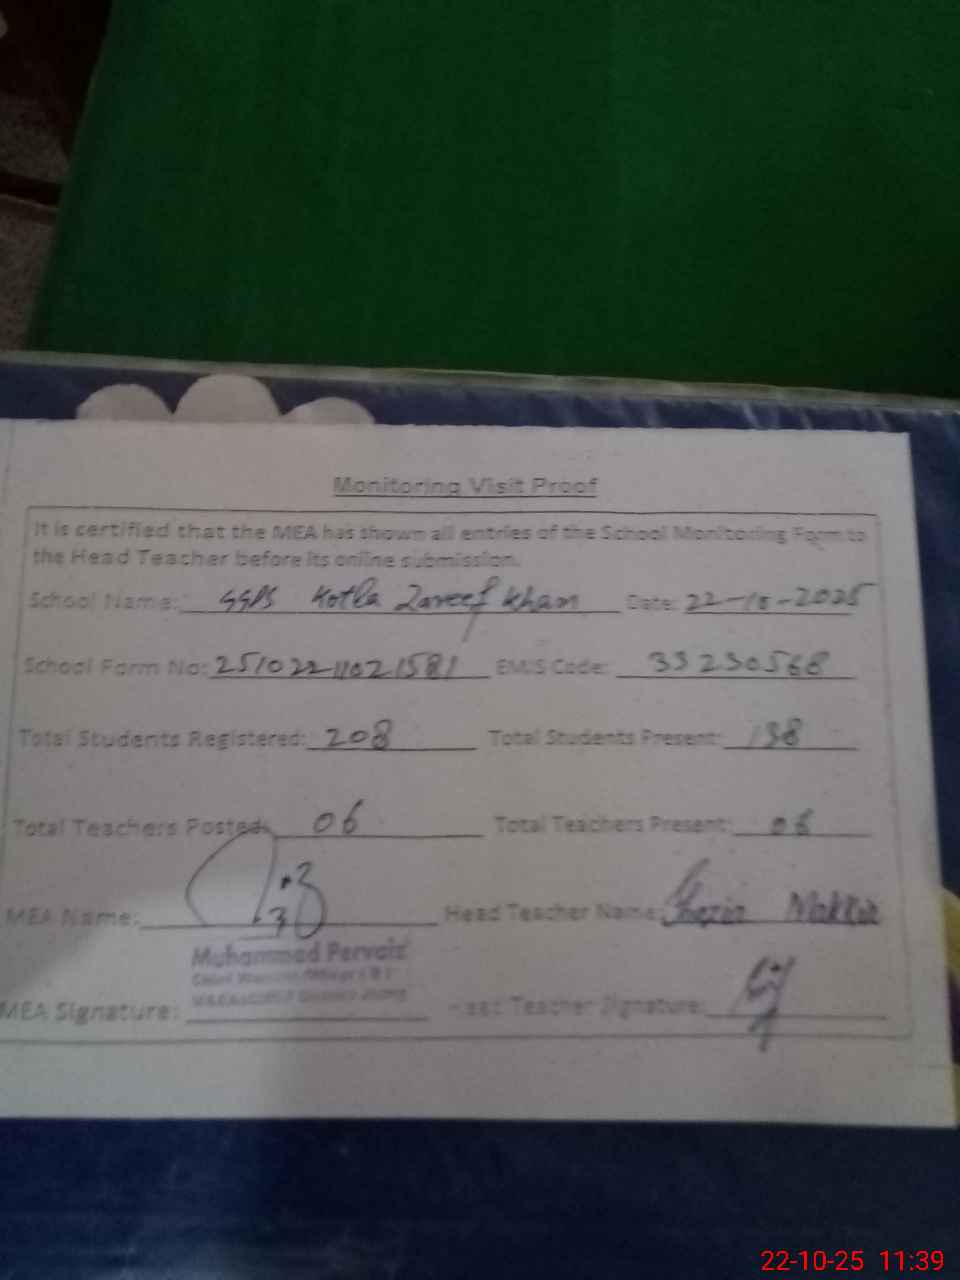 Monitoring Visit Proof
It is certified that the MEA has shown all entries of the School Monitoring Form to
the Head Teacher before its online submission.
School Name: GGPS Kotla Zareef Khan Date: 22-10-2025
School Form No: 25102211021581 EMIS Code: 33230568
Total Students Registered: 208 Total Students Present: 198
Total Teachers Posted: 06 Total Teachers Present: 06
MEA Name: Head Teacher Name:
Muhammad Pervaiz
MEA Signature: Head Teacher Signature:
22-10-25 11:39